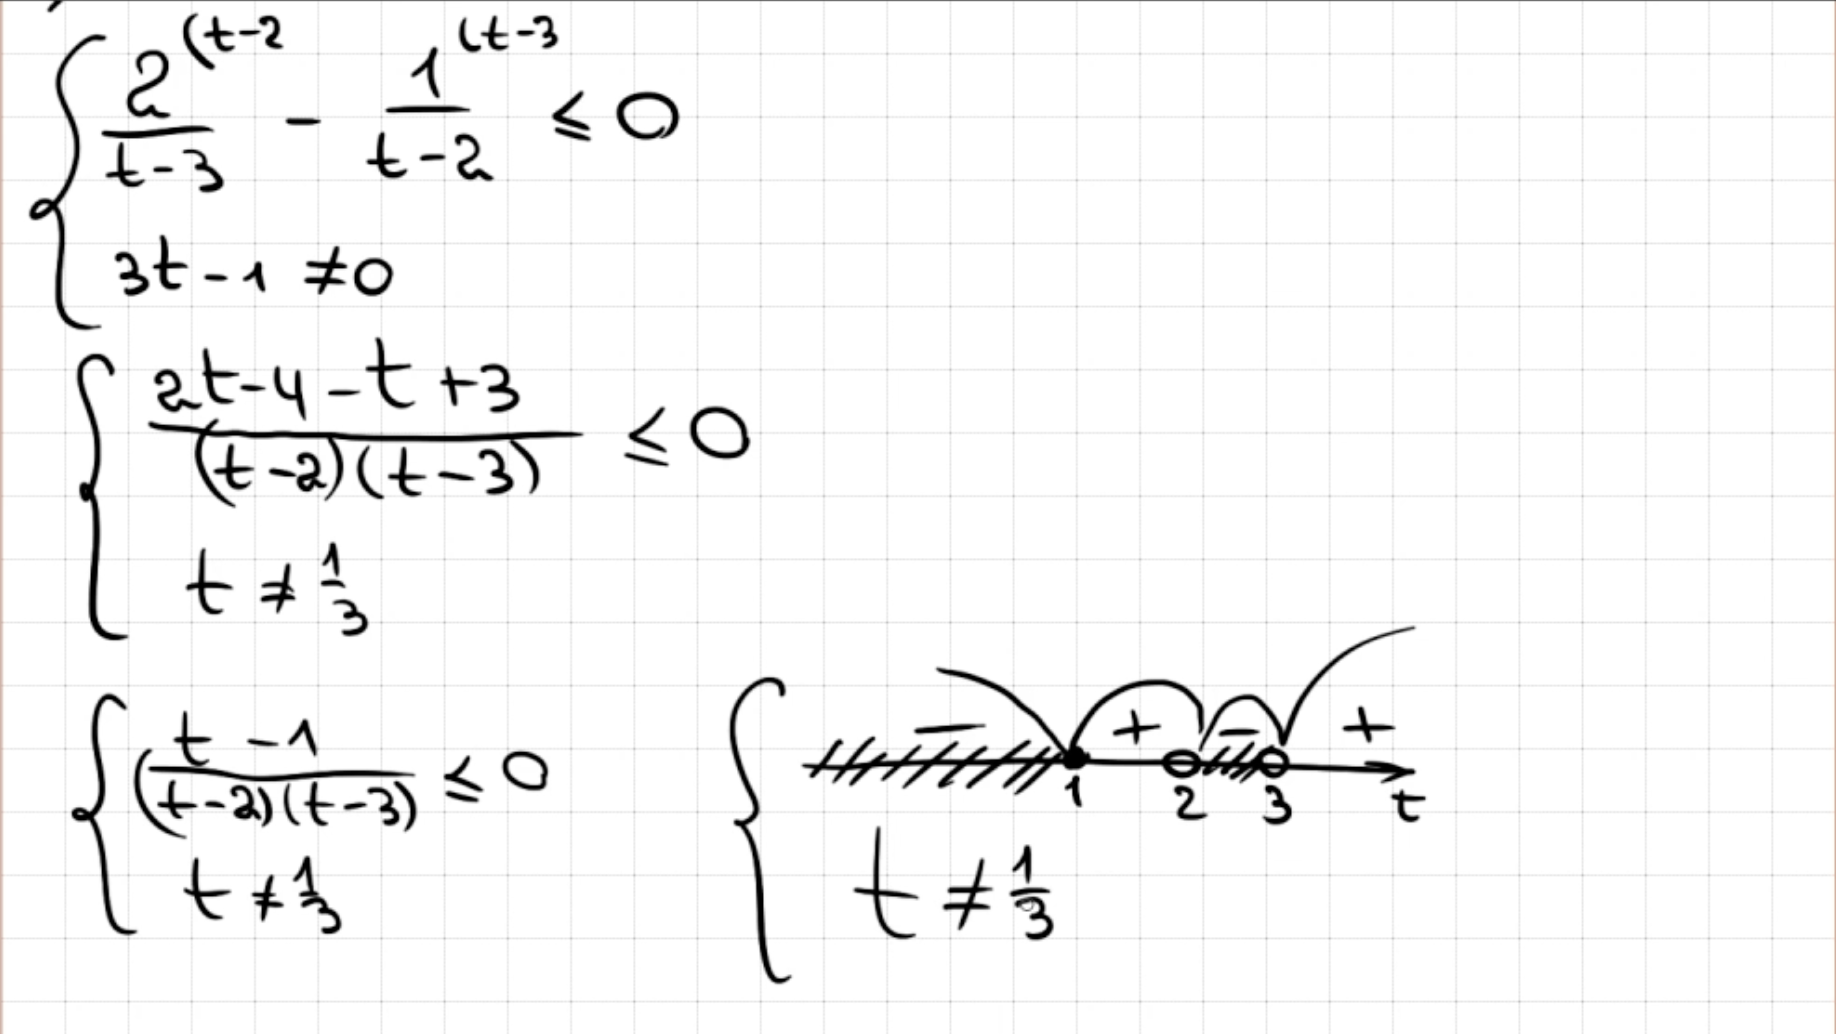 2^(t-2 / t-3 - 1^(t-3 / t-2 ≤ 0
3t-1 ≠0
2t-4-t+3 / (t-2)(t-3) ≤ 0
t ≠ 1/3
t-1 / (t-2)(t-3) ≤ 0
t ≠ 1/3
- + - +
1 2 3 t
t ≠ 1/3